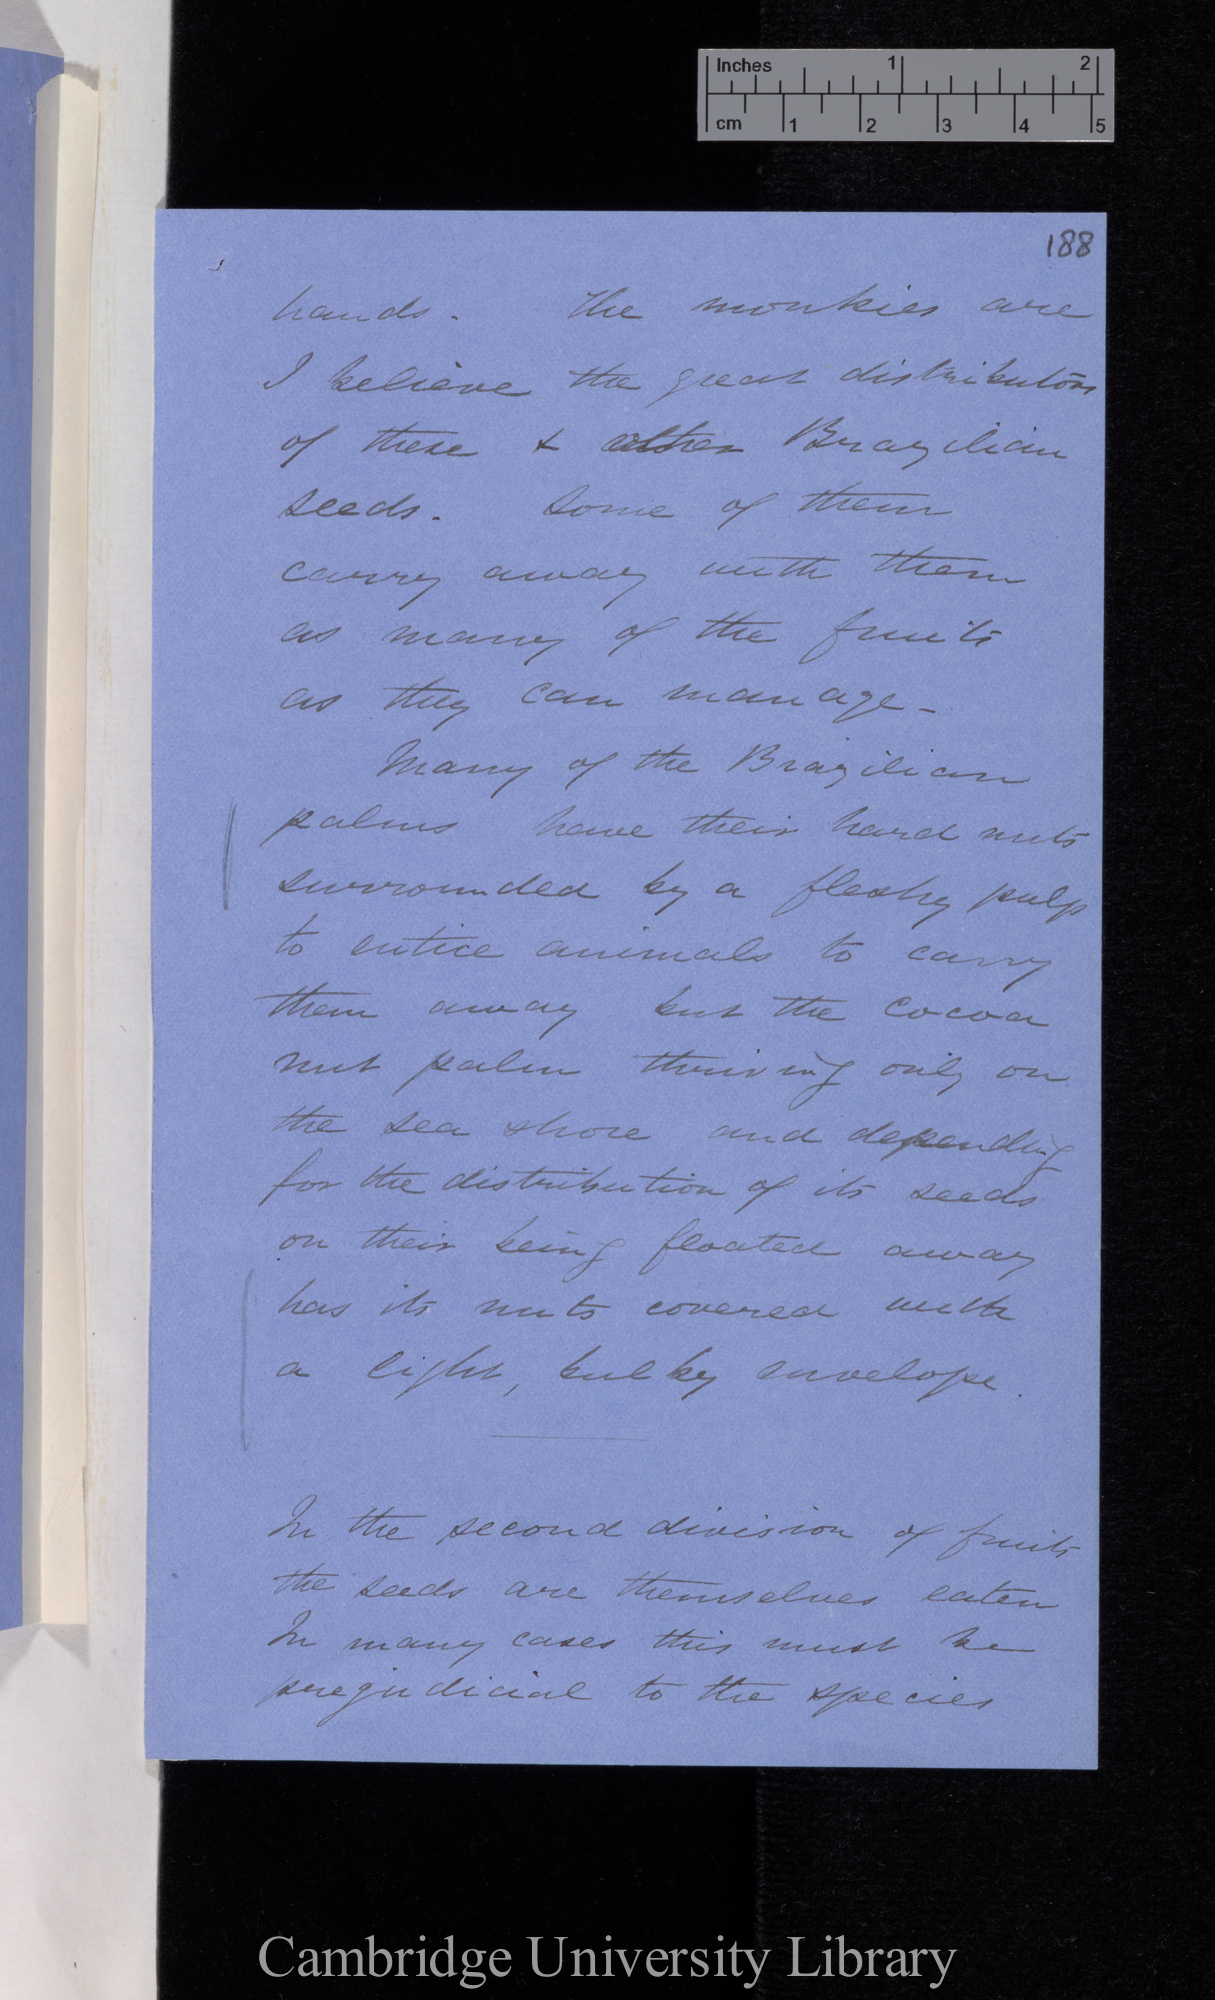 Inches 1 2
cm 1 2 3 4 5
188
hands. The monkies are
I believe the great distributors
of these & other Brazilian
seeds. Some of them
carry away with them
as many of the fruits
as they can manage -
Many of the Brazilian
palms have their hard nuts
surrounded by a fleshy pulp
to entice animals to carry
them away but the cocoa
nut palm thriving only on
the sea shore and depending
for the distribution of its seeds
on their being floated away
has its nuts covered with
a light, bulky envelope.
In the second division of fruits
the seeds are themselves eaten
In many cases this must be
prejudicial to the species
Cambridge University Library